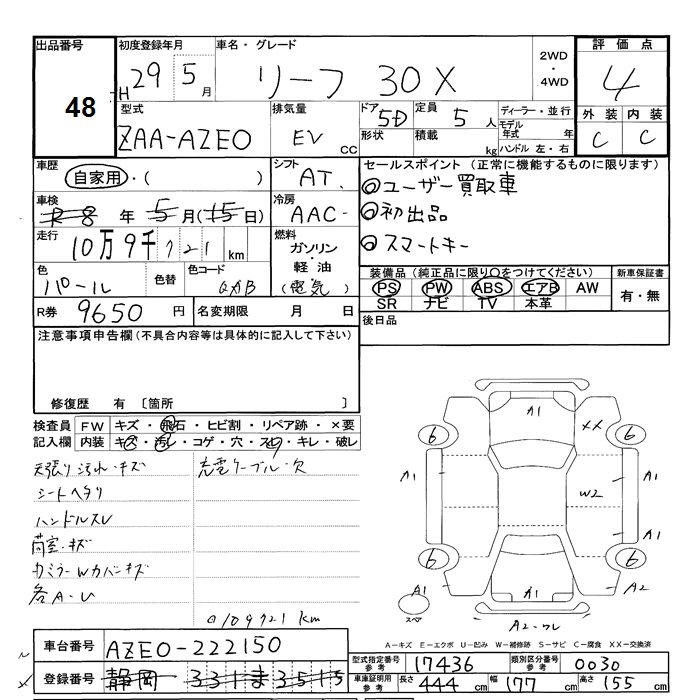 出品番号 初度登録年月 車名・グレード 2WD・4WD 評価点
48 H 29 5月 リーフ 30X 4
型式 排気量 ドア 5D 定員 5人 ディーラー・並行 外装 内装
ZAA-AZE0 EV CC 形状 積載 kg モデル年式 年 C C
ハンドル 左・右
車歴 シフト セールスポイント (正常に機能するものに限ります)
自家用・( ) AT
◎ユーザー買取車
車検 冷房
R8年 5月(15日) AAC
◎初出品
走行 燃料
10万9千721km ガソリン・軽油(電気)
◎スマートキー
色 色替 色コード
パール QAB
装備品(純正品に限り○をつけてください) 新車保証書
PS PW ABS エアB AW 有・無
SR ナビ TV 本革
R券 9650円 名変期限 月 日
後日品
注意事項申告欄(不具合内容等は具体的に記入して下さい)
修復歴 有 〔箇所 〕
検査員 FW キズ・飛石・ヒビ割・リペア跡・×要
記入欄 内装 キズ・汚れ・コゲ・穴・スレ・キレ・破レ
天張り汚れ・キズ 充電ケーブル欠
シートヘタリ
ハンドルスレ
荷室・キズ
カミラーWカバーキズ
各A・U
◎109721km
A1 XX
6 6
A1 A1
W2
A1
6 6
A1 A1 A2
スペア A2-ワレ
A-キズ E-エクボ U-凹み W-補修跡 S-サビ C-腐食 XX-交換済
車台番号 AZE0-222150
型式指定番号参考 17436 類別区分番号参考 0030
登録番号 静岡 331ま3515
車庫証明用参考 長さ 444cm 幅 177cm 高さ 155cm